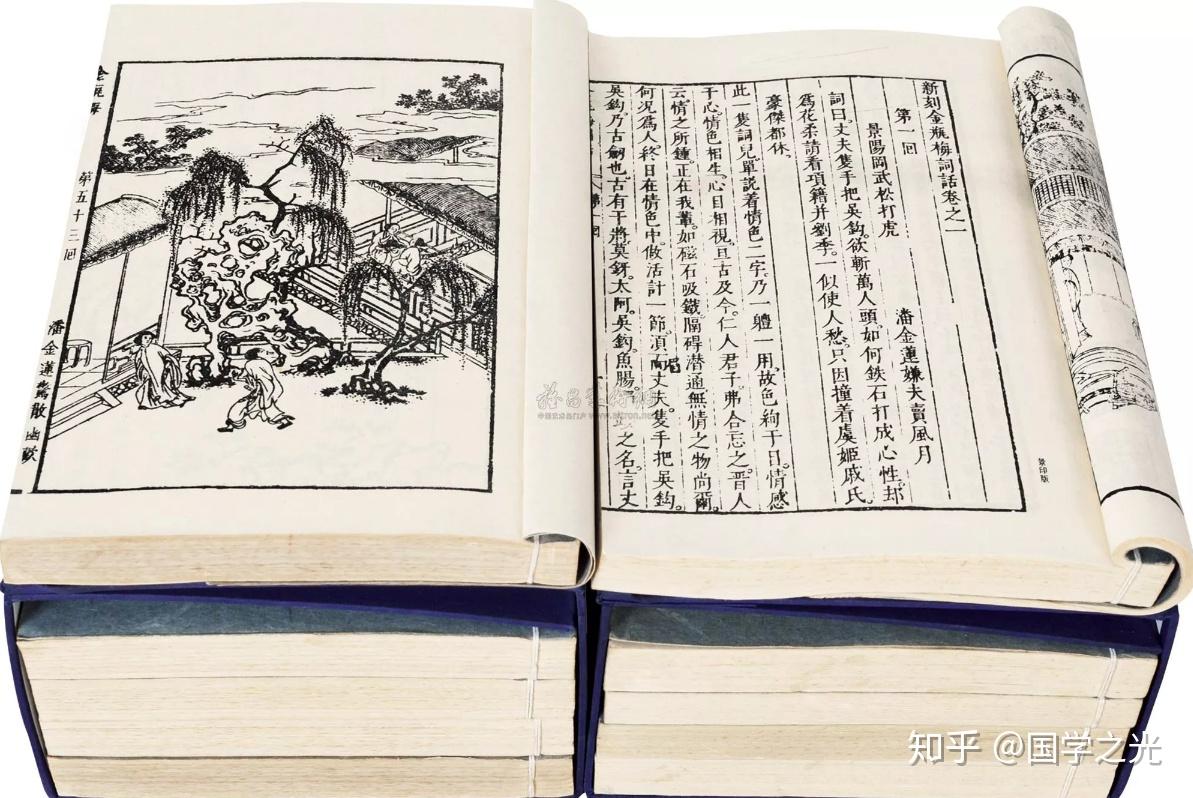 新刻金瓶梅詞話卷之一
第一回
景陽岡武松打虎 潘金蓮嫌夫賣風月
詞曰、丈夫隻手把吳鈎、欲斬萬人頭、如何鉄石打成心性、却
爲花柔、請看項籍并劉季、一似使人愁、只因撞着虞姬戚氏、
豪傑都休、
此一隻詞兒、單説着情色二字、乃一體一用、故色絢于目、情感
于心、情色相生、心目相視、亘古及今、仁人君子、弗合忘之、晋人
云、情之所鍾、正在我輩、如磁石吸鐵、隔碍潜通、無情之物尚爾、
何況爲人、終日在情色中、做活計一節、須而丈夫隻手把吳鈎、
吳鈎乃古劒也、古有干將莫鋣、太阿、吳鈎、魚腸、之名、言丈
景印版
第五十三回
潘金蓮驚散幽歡
知乎 @国学之光